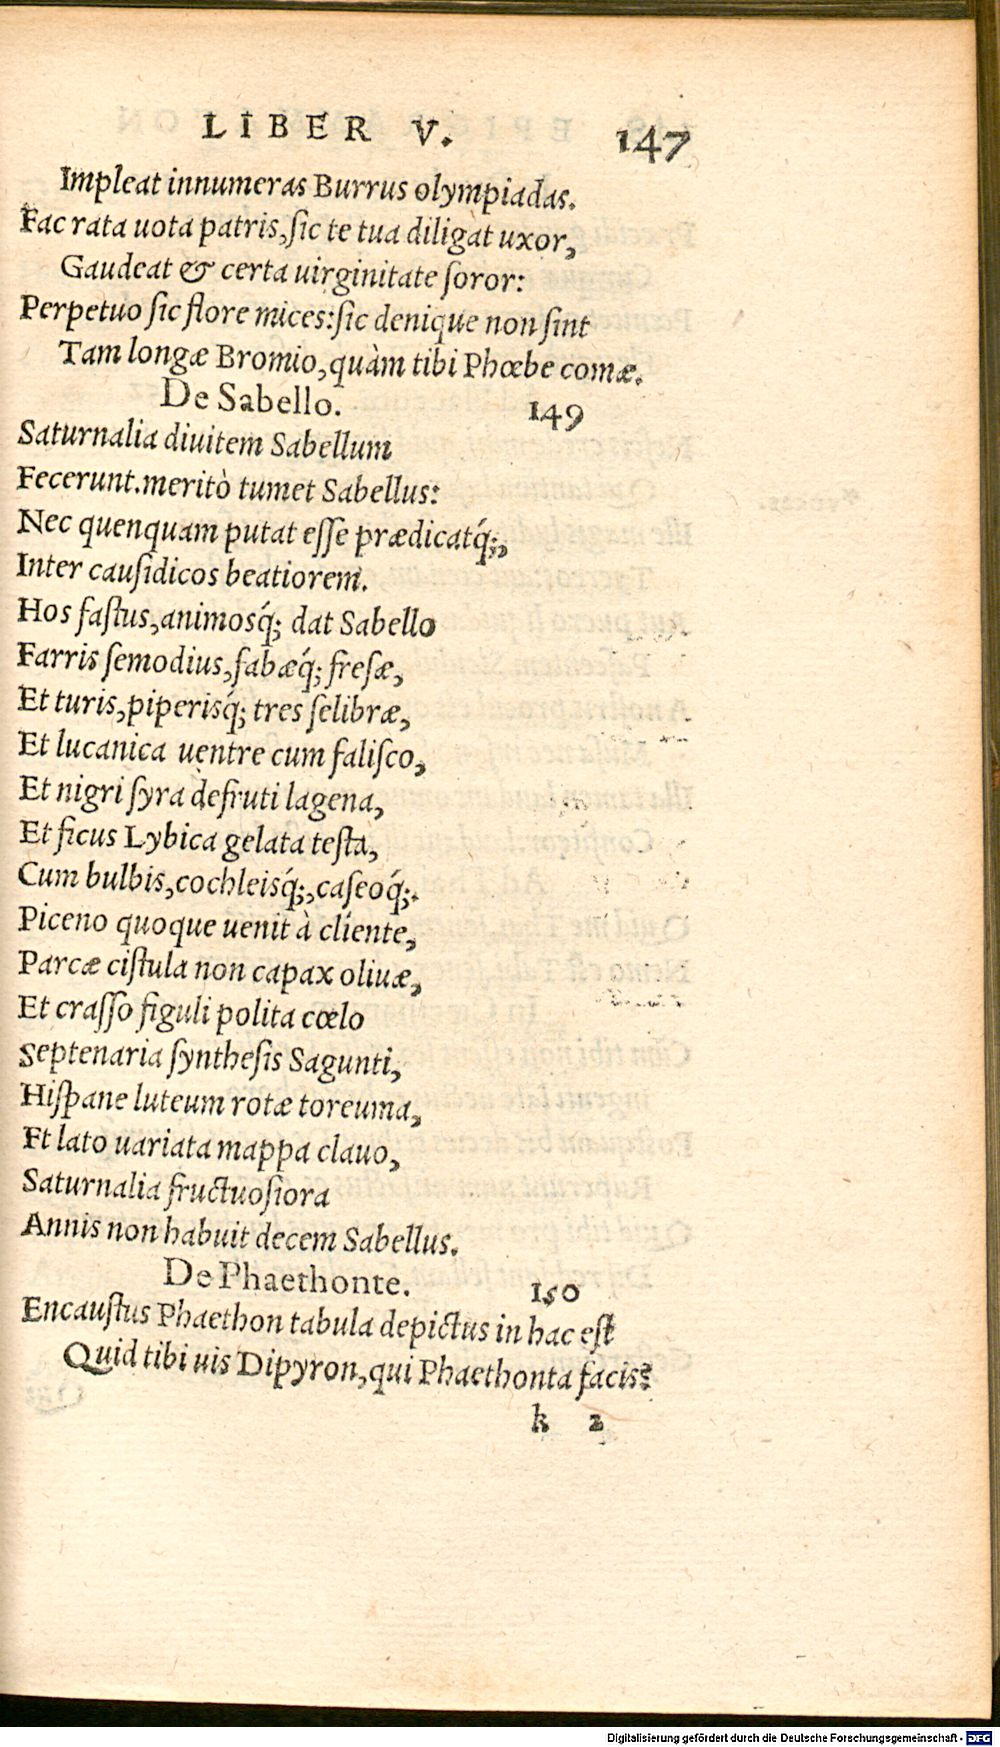 LIBER V. 147
Impleat innumeras Burrus olympiadas.
Fac rata uota patris, ſic te tua diligat uxor,
Gaudeat & certa uirginitate ſoror:
Perpetuo ſic flore mices: ſic denique non ſint
Tam longæ Bromio, quàm tibi Phœbe comæ.
De Sabello. 149
Saturnalia diuitem Sabellum
Fecerunt. meritò tumet Sabellus:
Nec quenquam putat eſſe prædicatq́;,
Inter cauſidicos beatiorem.
Hos faſtus, animosq́; dat Sabello
Farris ſemodius, fabæq́; freſæ,
Et turis, piperisq́; tres ſelibræ,
Et lucanica uentre cum faliſco,
Et nigri ſyra defruti lagena,
Et ficus Lybica gelata teſta,
Cum bulbis, cochleisq́;, caſeoq́;.
Piceno quoque uenit à cliente,
Parcæ ciſtula non capax oliuæ,
Et craſſo figuli polita cœlo
Septenaria ſyntheſis Sagunti,
Hiſpane luteum rotæ toreuma,
Et lato uariata mappa clauo,
Saturnalia fructuoſiora
Annis non habuit decem Sabellus.
De Phaethonte. 150
Encauſtus Phaethon tabula depictus in hac eſt
Quid tibi uis Dipyron, qui Phaethonta facis?
k 2
Digitalisierung gefördert durch die Deutsche Forschungsgemeinschaft - DFG